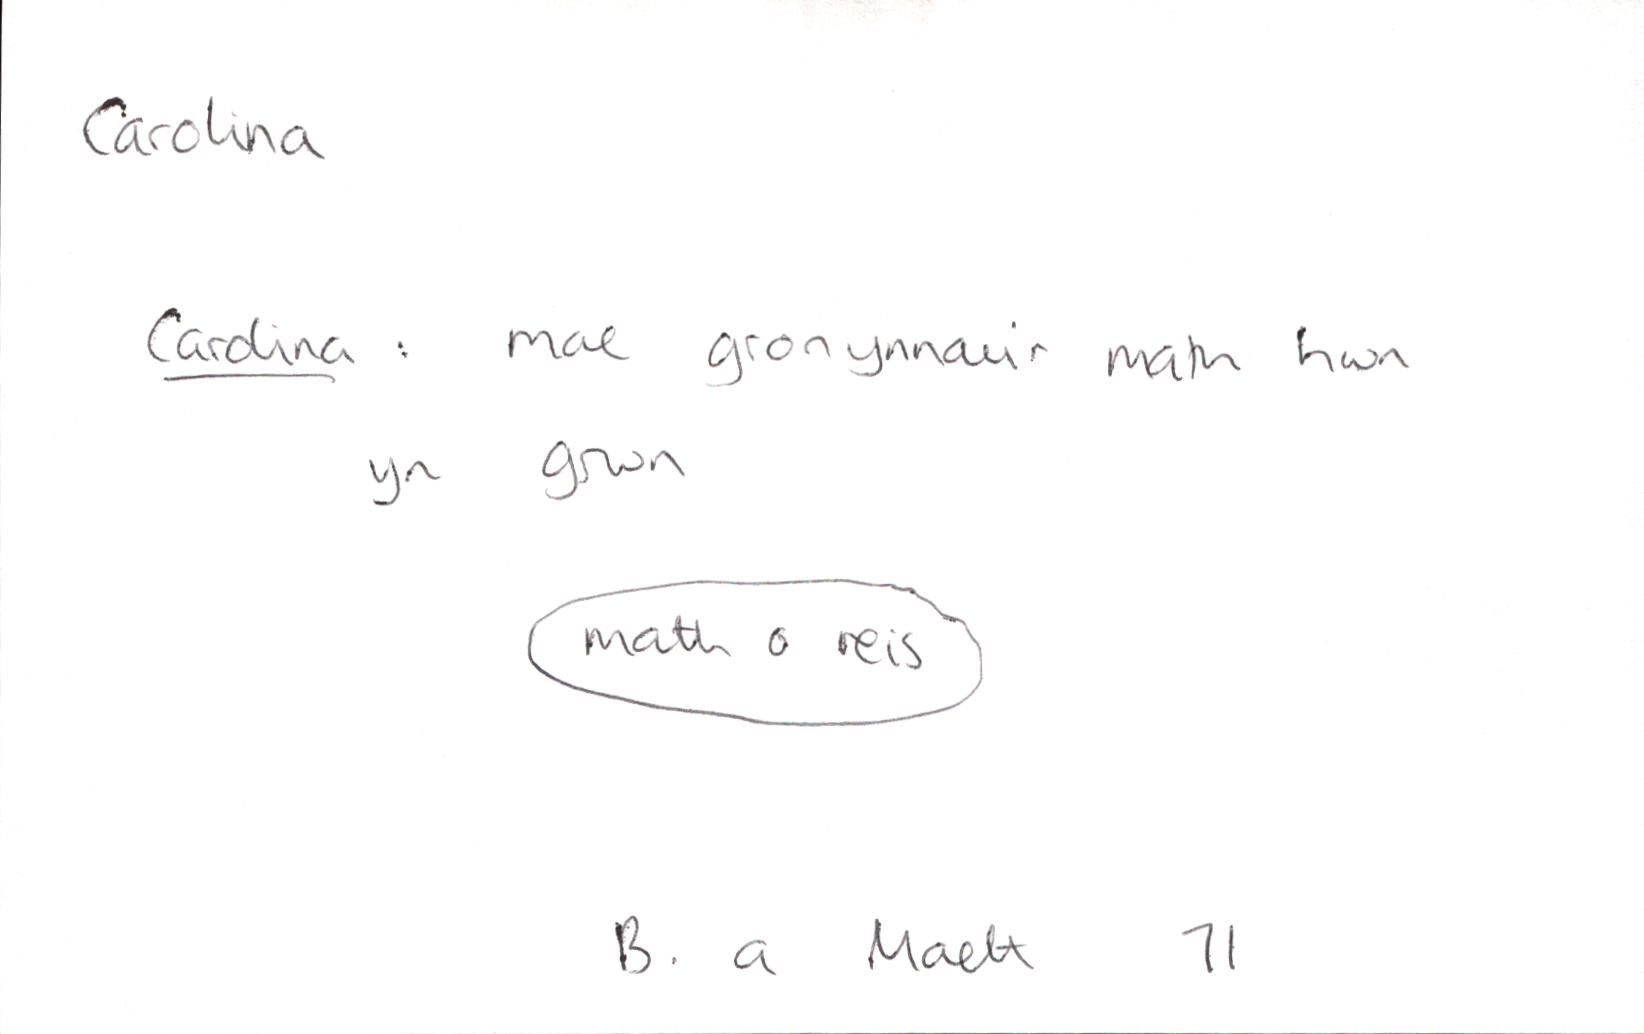 Carolina
Carolina : mae gronynnau'r math hwn
yn grwn
math o reis
B. a Maeth 71